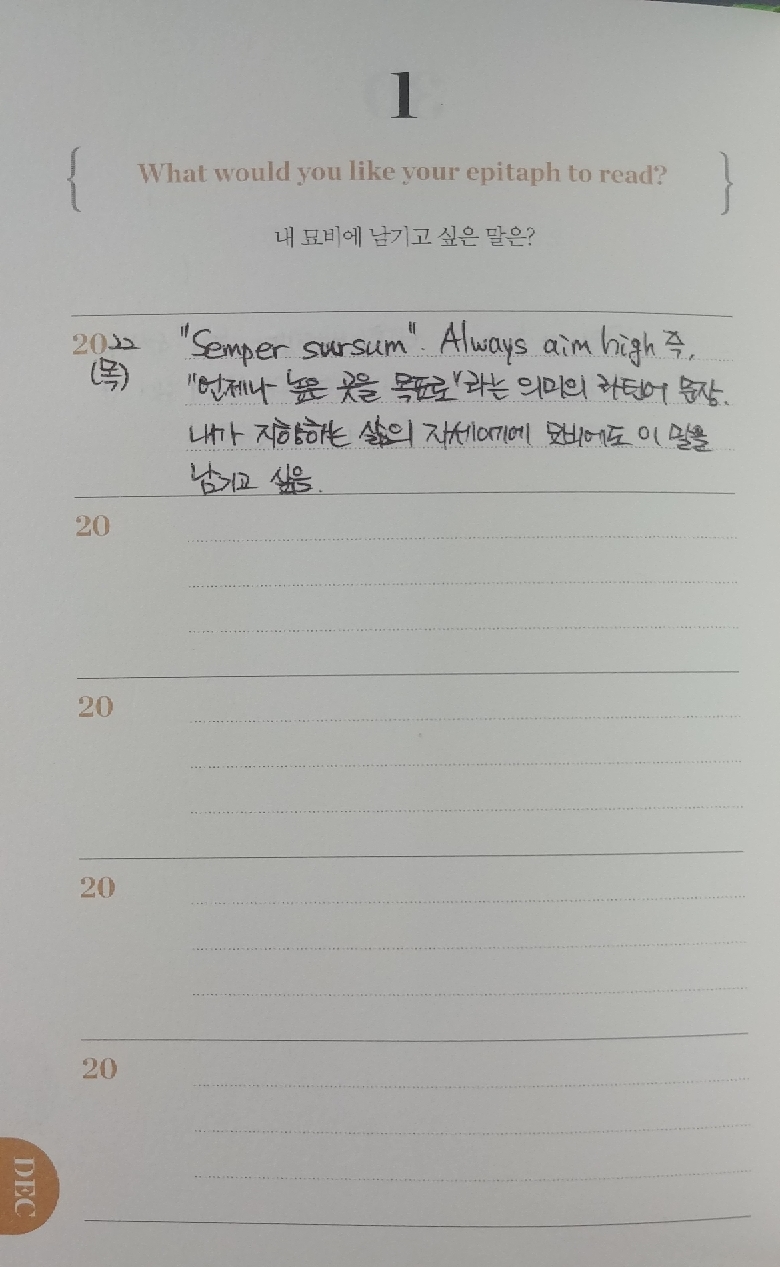 1
What would you like your epitaph to read?
내 묘비에 남기고 싶은 말은?
2022 "Semper sursum". Always aim high 즉,
(목) "언제나 높은 곳을 목표로"라는 의미의 라틴어 문장.
내가 지향하는 삶의 자세이기에 묘비에도 이 말을
남기고 싶음.
20
20
20
20
DEC